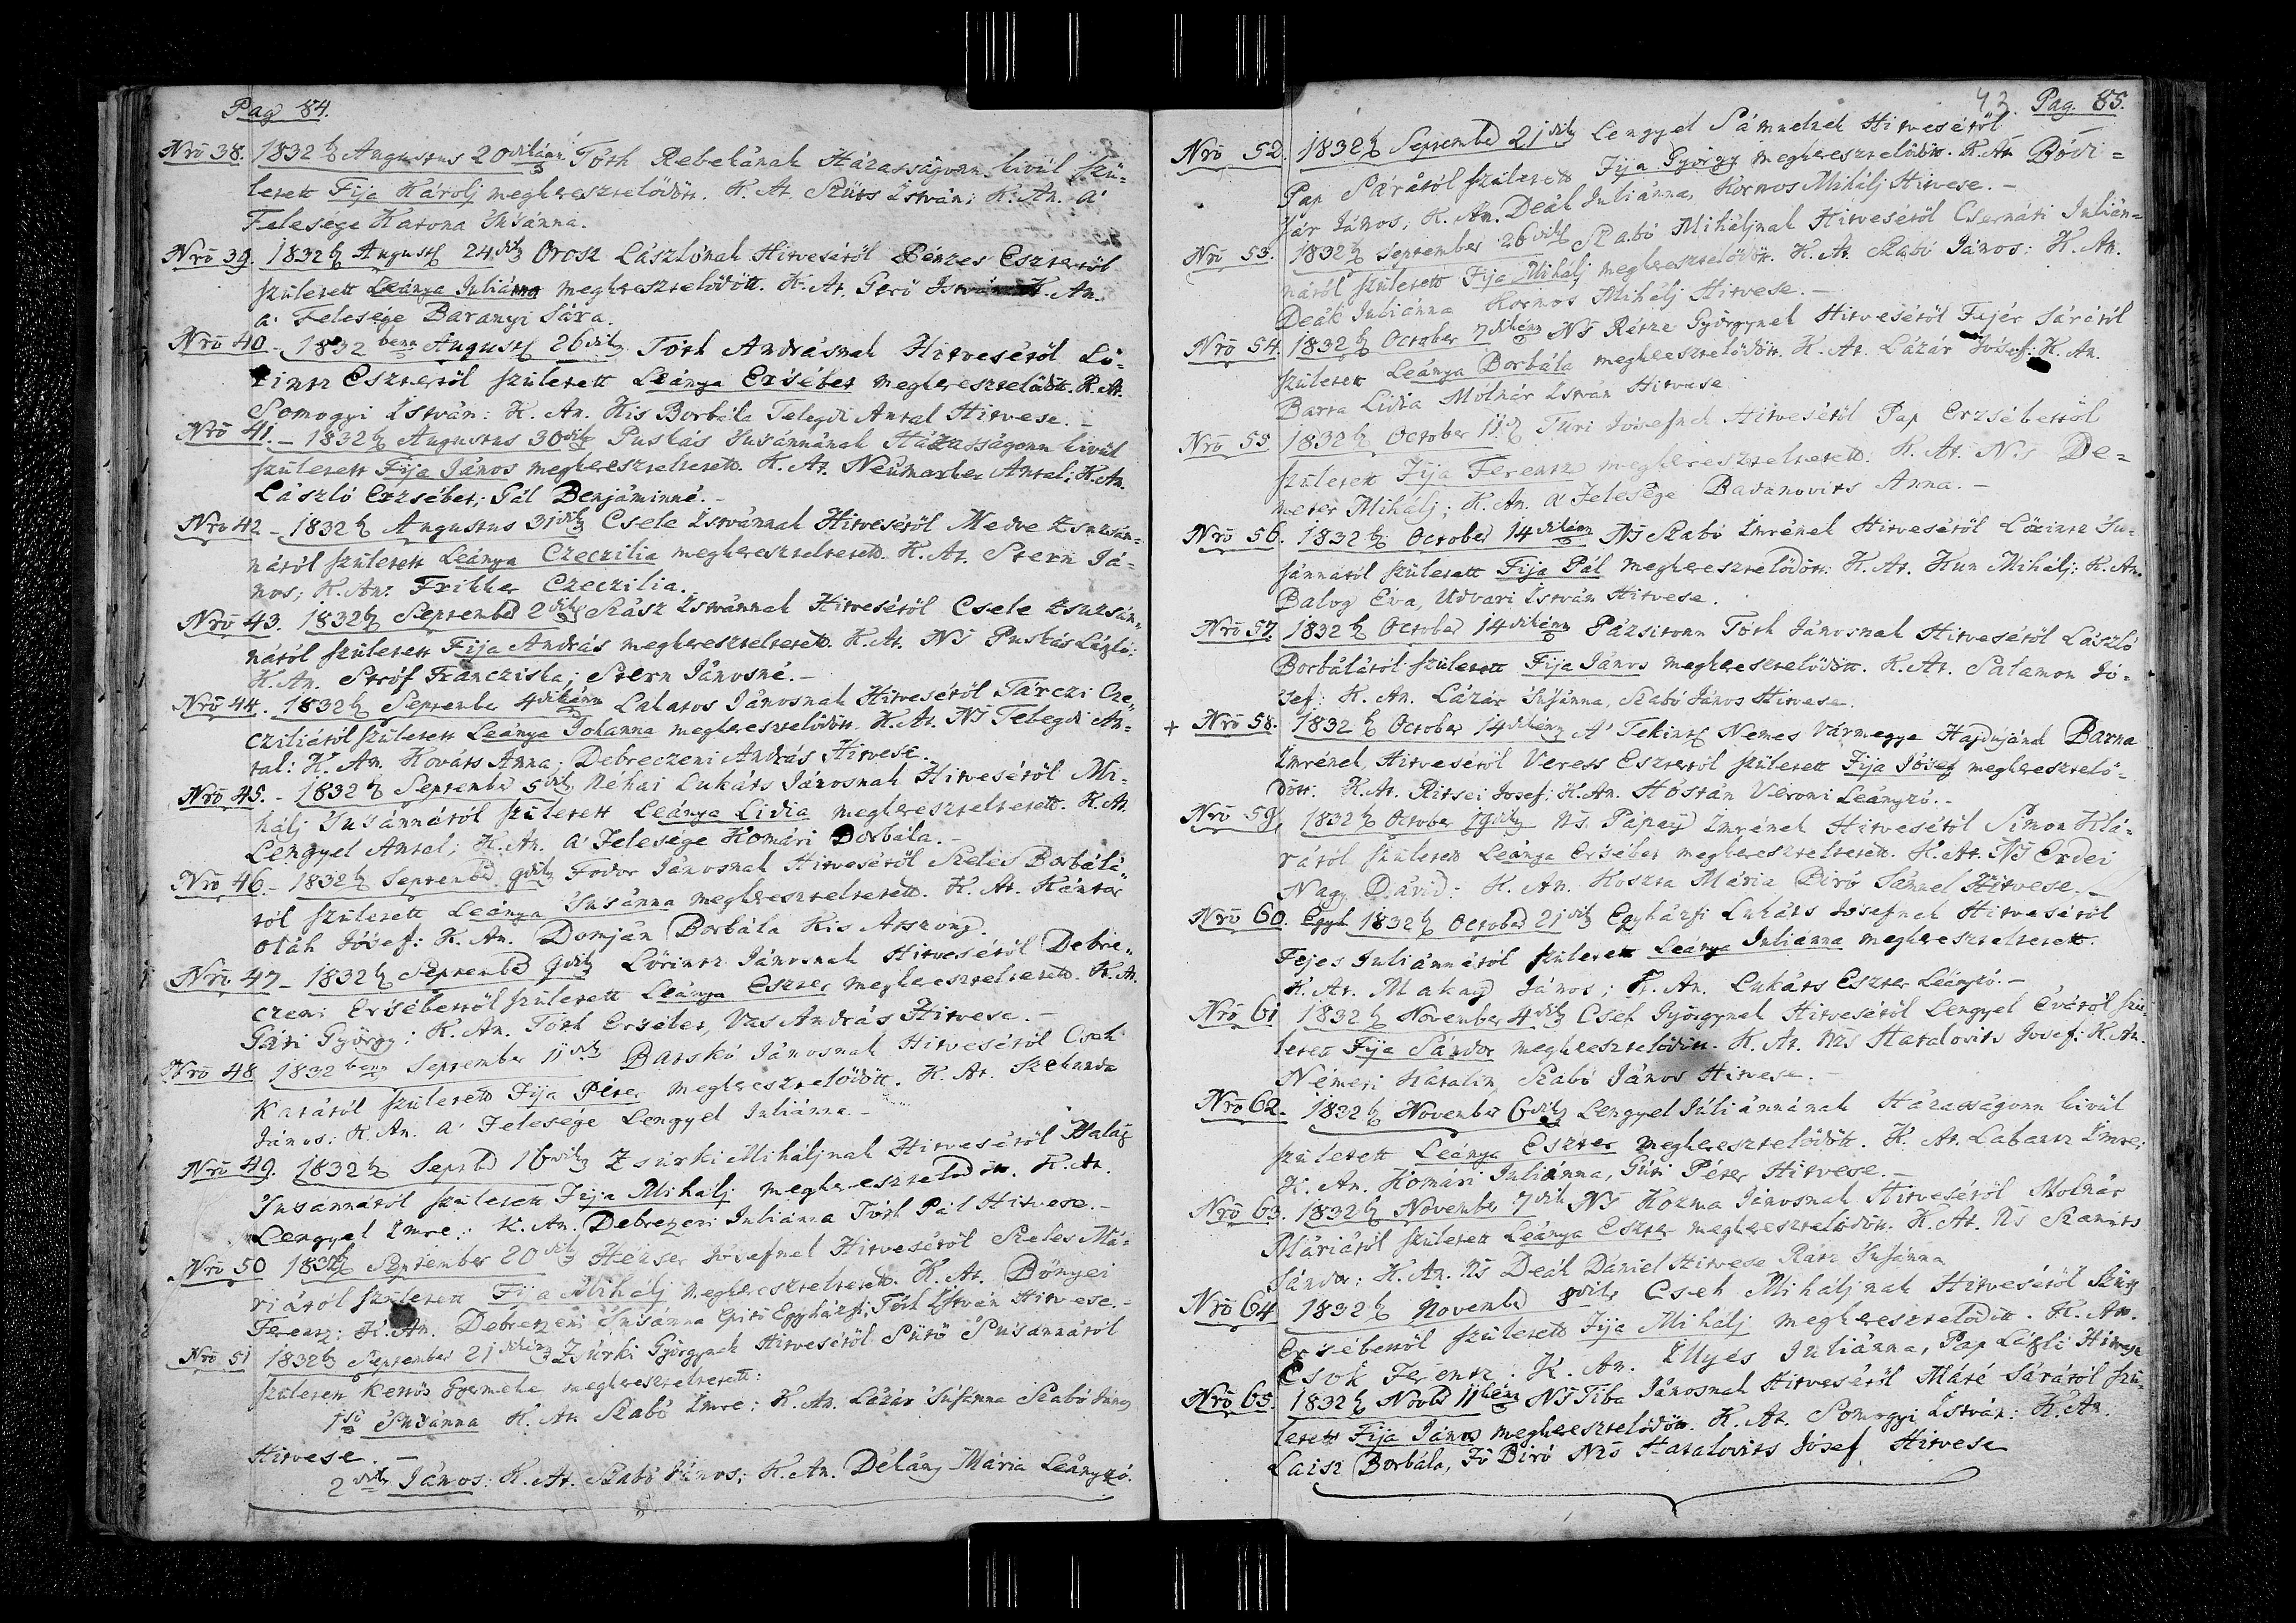 Pag 84.
Nrō 38. 1832 Augustus 20dikánn Tóth Rebekának Házasságonn kivül szü-
letett Fija Károlj megkereszteltödött. K. At. Szüts István; K. An. a'
Felesége Katona Susánna.
Nrō 39. 1832 August 24dik Orosz Lászlónak Hitvesétöl Pénzes Esztertöl
született Leánya Juliánna megkeresztelödött. K. At. Gerö István K. An.
a' Felesége Baranyi Sára.
Nrō 40 - 1832benn August 26dik Tóth Andrásnak Hitvesétöl Lö-
rintz Esztertöl született Leánya Ersébet megkeresztelödött. K. At.
Somogyi István: K. An. Kis Borbála Telegdi Antal Hitvese. -
Nrō 41. - 1832 Augustus 30dik Puskás Susánnának Házasságonn kivül
született Fija János megkereszteltetett. K. At. Neümarker Antal; K. An.
László Erzsébet; Gál Benjáminné. -
Nrō 42 - 1832 Augustus 31dik Csele Istvánnak Hitvesétöl Medve Zsuzsán-
nától született Leánya Czeczilia megkereszteltetett. K. At. Stern Já-
nos; K. An. Frikker Czeczilia.
Nrō 43. 1832 Septemb 2dik Szász Istvánnak Hitvesétöl Csele Zsuzsán-
nától született Fija András megkereszteltetett. K. At. NS Puskás László;
K. An. Stróf Francziska; Stern Jánosné. -
Nrō 44. 1832 September 4dikénn Lakatos Jánosnak Hitvesétöl Tárczi Cze-
cziliától született Leánya Johanna megkeresztelödött. K. At. NS Telegdi An-
tal: K. An. Kováts Anna; Debreczeni András Hitvese. -
Nrō 45. - 1832 Septemb 5dik Néhai Lukáts Jánosnak Hitvesétöl Mi-
hálj Susánnától született Leánya Lidia megkereszteltetett. K. At.
Lengyel Antal; K. An. a' Felesége Komári Borbála. -
Nrō 46. - 1832 Septemb 9dik Fodor Jánosnak Hitvesétöl Szeles Borbálá-
tól született Leánya Susánna megkereszteltetett. K. At. Kántor
Oláh Jósef: K. An. Domján Borbála Kis Asszony.
Nrō 47 - 1832 Septemb 9dik Lörintz Jánosnak Hitvesétöl Debre-
czeni Ersébettöl született Leánya Eszter megkereszteltetett. K. At.
Gáti György; K. An. Tóth Ersébet, Vas András Hitvese. -
Nrō 48 1832benn September 11dik Batskó Jánosnak Hitvesétöl Cseh
Katától született Fija Péter megkeresztelödött. K. At. Szekanda
János: K. An. a' Felesége Lengyel Juliánna. -
Nrō 49. 1832 Septb 16dik Zsurki Miháljnak Hitvesétöl Halász
Susánnától született Fija Mihálj megkeresztelödött. K. At.
Lengyel Imre; K. An. Debretzeni Juliánna Tóth Pál Hitvese. -
Nrō 50 1832 September 20dik Heuser Josefnek Hitvesétöl Szeles Má-
riától született Fija Mihálj megkereszteltetett. K. At. Bönyei
Ferentz; K. An. Debretzeni Susánna Epitö Egyházfi Tóth István Hitvese. -
Nrō 51 1832 September 21dikénn Zsurki Györgynek Hitvesétöl Sütö Susánnától
született kettös Gyermeke megkereszteltetett:
1sö Susánna K. At. Szabó Imre; K. An. Lázár Susánna Szabó János
Hitvese. -
2dik János: K. At. Szabó János; K. An. Délány Mária Leányzó.
43 Pag. 85.
Nrō 52. 1832 Septemb 21dik Lengyel Sámuelnek Hitvesétöl
Pap Sárától született Fija György megkeresztelödött. K. At. Bódi-
zár János; K. An. Deák Juliánna, Kormos Mihálj Hitvese. -
Nrō 53. 1832 September 26dik Szabó Miháljnak Hitvesétöl Csernáti Julián-
nától született Fija Mihálj megkeresztelödött. K. At. Szabó János: K. An.
Deák Juliánna Kormos Mihálj Hitvese. -
Nrō 54. 1832 October 7dikénn NS Rétze Györgynek Hitvesétöl Fejér Sárától
született Leánya Borbála megkeresztelödött. K. At. Lázár Jósef: K. An.
Barta Lidia Mólnár István Hitvese
Nrō 55. 1832 October 11 Turi Jósefnek Hitvesétöl Pap Erzsébettöl
született Fija Ferentz megkereszteltetett. K. At. N.s De-
meter Mihálj; K. An. a' Felesége Badanovits Anna. -
Nrō 56. 1832 October 14dikénn NS Szabó Imrének Hitvesétöl Lörintz Su-
sánnától született Fija Pál megkeresztelödött. K. At. Kun Mihálj: K. An.
Balog Éva, Udvari István Hitvese.
Nrō 57. 1832 October 14dikénn Pázsitonn Tóth Jánosnak Hitvesétöl László
Borbálától született Fija János megkeresztelödött. K. At. Salamon Jó-
sef: K. An. Lázár Susánna, Szabó János Hitvese.
+ Nrō 58. 1832 October 14dikénn A' Tekints Nemes Vármegye Hajdujának Barna
Imrének, Hitvesétöl Veress Esztertöl született Fija Jósef megkeresztelö-
dött. K. At. Ritsei Josef; K. An. Hostán Veroni Leányzó. -
Nrō 59. 1832 October 19dik NS. Pápay Imrének Hitvesétöl Simon Klá-
rától született Leánya Ersébet megkereszteltetett. K. At. NS Erdei
Nagy Dávid: K. An. Koszta Mária Biró Sámuel Hitvese. -
Nrō 60. Egyh 1832 Octob 21dik Egyházfi Lukáts Josefnek Hitvesétöl
Fejes Juliánnától született Leánya Juliánna megkereszteltetett.
K. At. Makay János; K. An. Lukáts Eszter Leányzó. -
Nrō 61 1832 November 4dik Cseh Györgynek Hitvesétöl Lengyel Évától szü-
letett Fija Sándor megkeresztelödött. K. At. NS Hatalovits Josef: K. An.
Németi Katalin, Szabó János Hitvese. -
Nrō 62. 1832 November 6dik Lengyel Juliánnának Házasságonn kivül
született Leánya Eszter megkeresztelödött. K. At. Labantz Imre;
K. An. Komári Juliánna, Gúti Péter Hitvese. -
Nrō 63. 1832 November 7dik NS Kozma Jánosnak Hitvesétöl Molnár
Máriától született Leánya Eszter megkeresztelödött. K. At. NS Szanits
Sándor; K. An. NS Deák Dániel Hitvese Rátz Susánna
Nrō 64 1832 Novemb 8dik Cseh Miháljnak Hitvesétöl Szüts
Ersébettöl született Fija Mihálj megkeresztelödött. K. At.
Csok Ferentz. K. An. Illyés Juliánna, Pap László Hitvese
Nrō 65. 1832 Novb 11kénn NS Tiba Jánosnak Hitvesétöl Máté Sárától szü-
letett Fija János megkeresztelödött. K. At. Somogyi István: K. An.
Laisz Borbála, Fö Biró NS Hatalovits Jósef Hitvese